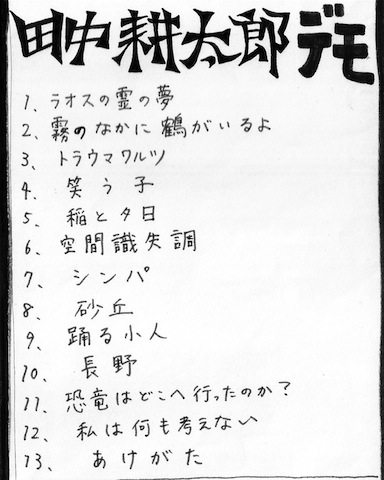 田中耕太郎デモ
1、ラオスの霊の夢
2、霧のなかに鶴がいるよ
3、トラウマワルツ
4、笑う子
5、稲と夕日
6、空間識失調
7、シンパ
8、砂丘
9、踊る小人
10、長野
11、恐竜はどこへ行ったのか?
12、私は何も考えない
13、あけがた